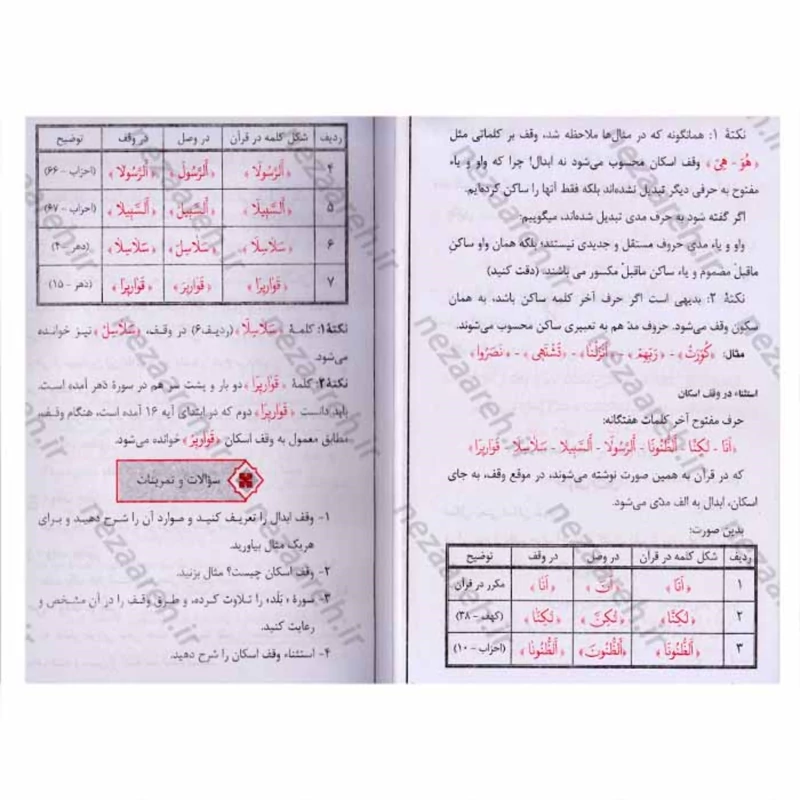 نکتهٔ ۱: همانگونه که در مثال‌ها ملاحظه شد، وقف بر کلماتی مثل
﴿هُوَ - هِیَ﴾ وقف اسکان محسوب می‌شود نه ابدال! چرا که واو و یاء
مفتوح به حرفی دیگر تبدیل نشده‌اند بلکه فقط آنها را ساکن کرده‌ایم.
اگر گفته شود به حرف مدی تبدیل شده‌اند، میگوییم:
واو و یاء مدی حروف مستقل و جدیدی نیستند؛ بلکه همان واو ساکنِ
ماقبلْ مضموم و یاء ساکن ماقبلْ مکسور می باشند. (دقت کنید)
نکتهٔ ۲: بدیهی است اگر حرف آخر کلمه ساکن باشد، به همان
سکون وقف می‌شود. حروف مدّ هم به تعبیری ساکن محسوب می‌شوند.
مثال: ﴿كُوِّرَتْ﴾ - ﴿رَبَّهُمْ﴾ - ﴿أَنْزَلْنَا﴾ - ﴿تَشْتَهِی﴾ - ﴿نَصَرُوا﴾
استثناء در وقف اسکان
حرف مفتوح آخر کلمات هفتگانه:
﴿أَنَا - لٰكِنَّا - ٱلظُّنُونَا - ٱلرَّسُولَا - ٱلسَّبِيلَا - سَلَاسِلَا - قَوَارِيرَا﴾
که در قرآن به همین صورت نوشته می‌شوند، در موقع وقف، به جای
اسکان، ابدال به الف مدّی می‌شود.
بدین صورت:
ردیف شکل کلمه در قرآن در وصل در وقف توضیح
۱ ﴿أَنَا﴾ ﴿أَنَ﴾ ﴿أَنَا﴾ مکرر در قرآن
۲ ﴿لٰكِنَّا﴾ ﴿لٰكِنَّ﴾ ﴿لٰكِنَّا﴾ (کهف - ۳۸)
۳ ﴿ٱلظُّنُونَا﴾ ﴿ٱلظُّنُونَ﴾ ﴿ٱلظُّنُونَا﴾ (احزاب - ۱۰)
ردیف شکل کلمه در قرآن در وصل در وقف توضیح
۴ ﴿ٱلرَّسُولَا﴾ ﴿ٱلرَّسُولَ﴾ ﴿ٱلرَّسُولَا﴾ (احزاب - ۶۶)
۵ ﴿ٱلسَّبِيلَا﴾ ﴿ٱلسَّبِيلَ﴾ ﴿ٱلسَّبِيلَا﴾ (احزاب - ۶۷)
۶ ﴿سَلَاسِلَا﴾ ﴿سَلَاسِلَ﴾ ﴿سَلَاسِلَا﴾ (دهر - ۴)
۷ ﴿قَوَارِيرَا﴾ ﴿قَوَارِيرَ﴾ ﴿قَوَارِيرَا﴾ (دهر - ۱۵)
نکتهٔ۱: کلمهٔ ﴿سَلَاسِلَا﴾ (ردیف۶) در وقف، ﴿سَلَاسِلْ﴾ نیز خوانده
می‌شود.
نکتهٔ۲: کلمهٔ ﴿قَوَارِيرَا﴾ دو بار و پشت سر هم در سورهٔ دهر آمده است.
باید دانست ﴿قَوَارِيرَا﴾ دوم که در ابتدای آیه ۱۶ آمده است، هنگام وقف،
مطابق معمول به وقف اسکان ﴿قَوَارِيرْ﴾ خوانده می‌شود.
سؤالات و تمرینات
۱- وقف ابدال را تعریف کنید و موارد آن را شرح دهید و برای
هریک مثال بیاورید.
۲- وقف اسکان چیست؟ مثال بزنید.
۳- سورهٔ «بَلَد» را تلاوت کرده، و طرق وقف را در آن مشخص و
رعایت کنید.
۴- استثناء وقف اسکان را شرح دهید.
nezaareh.ir